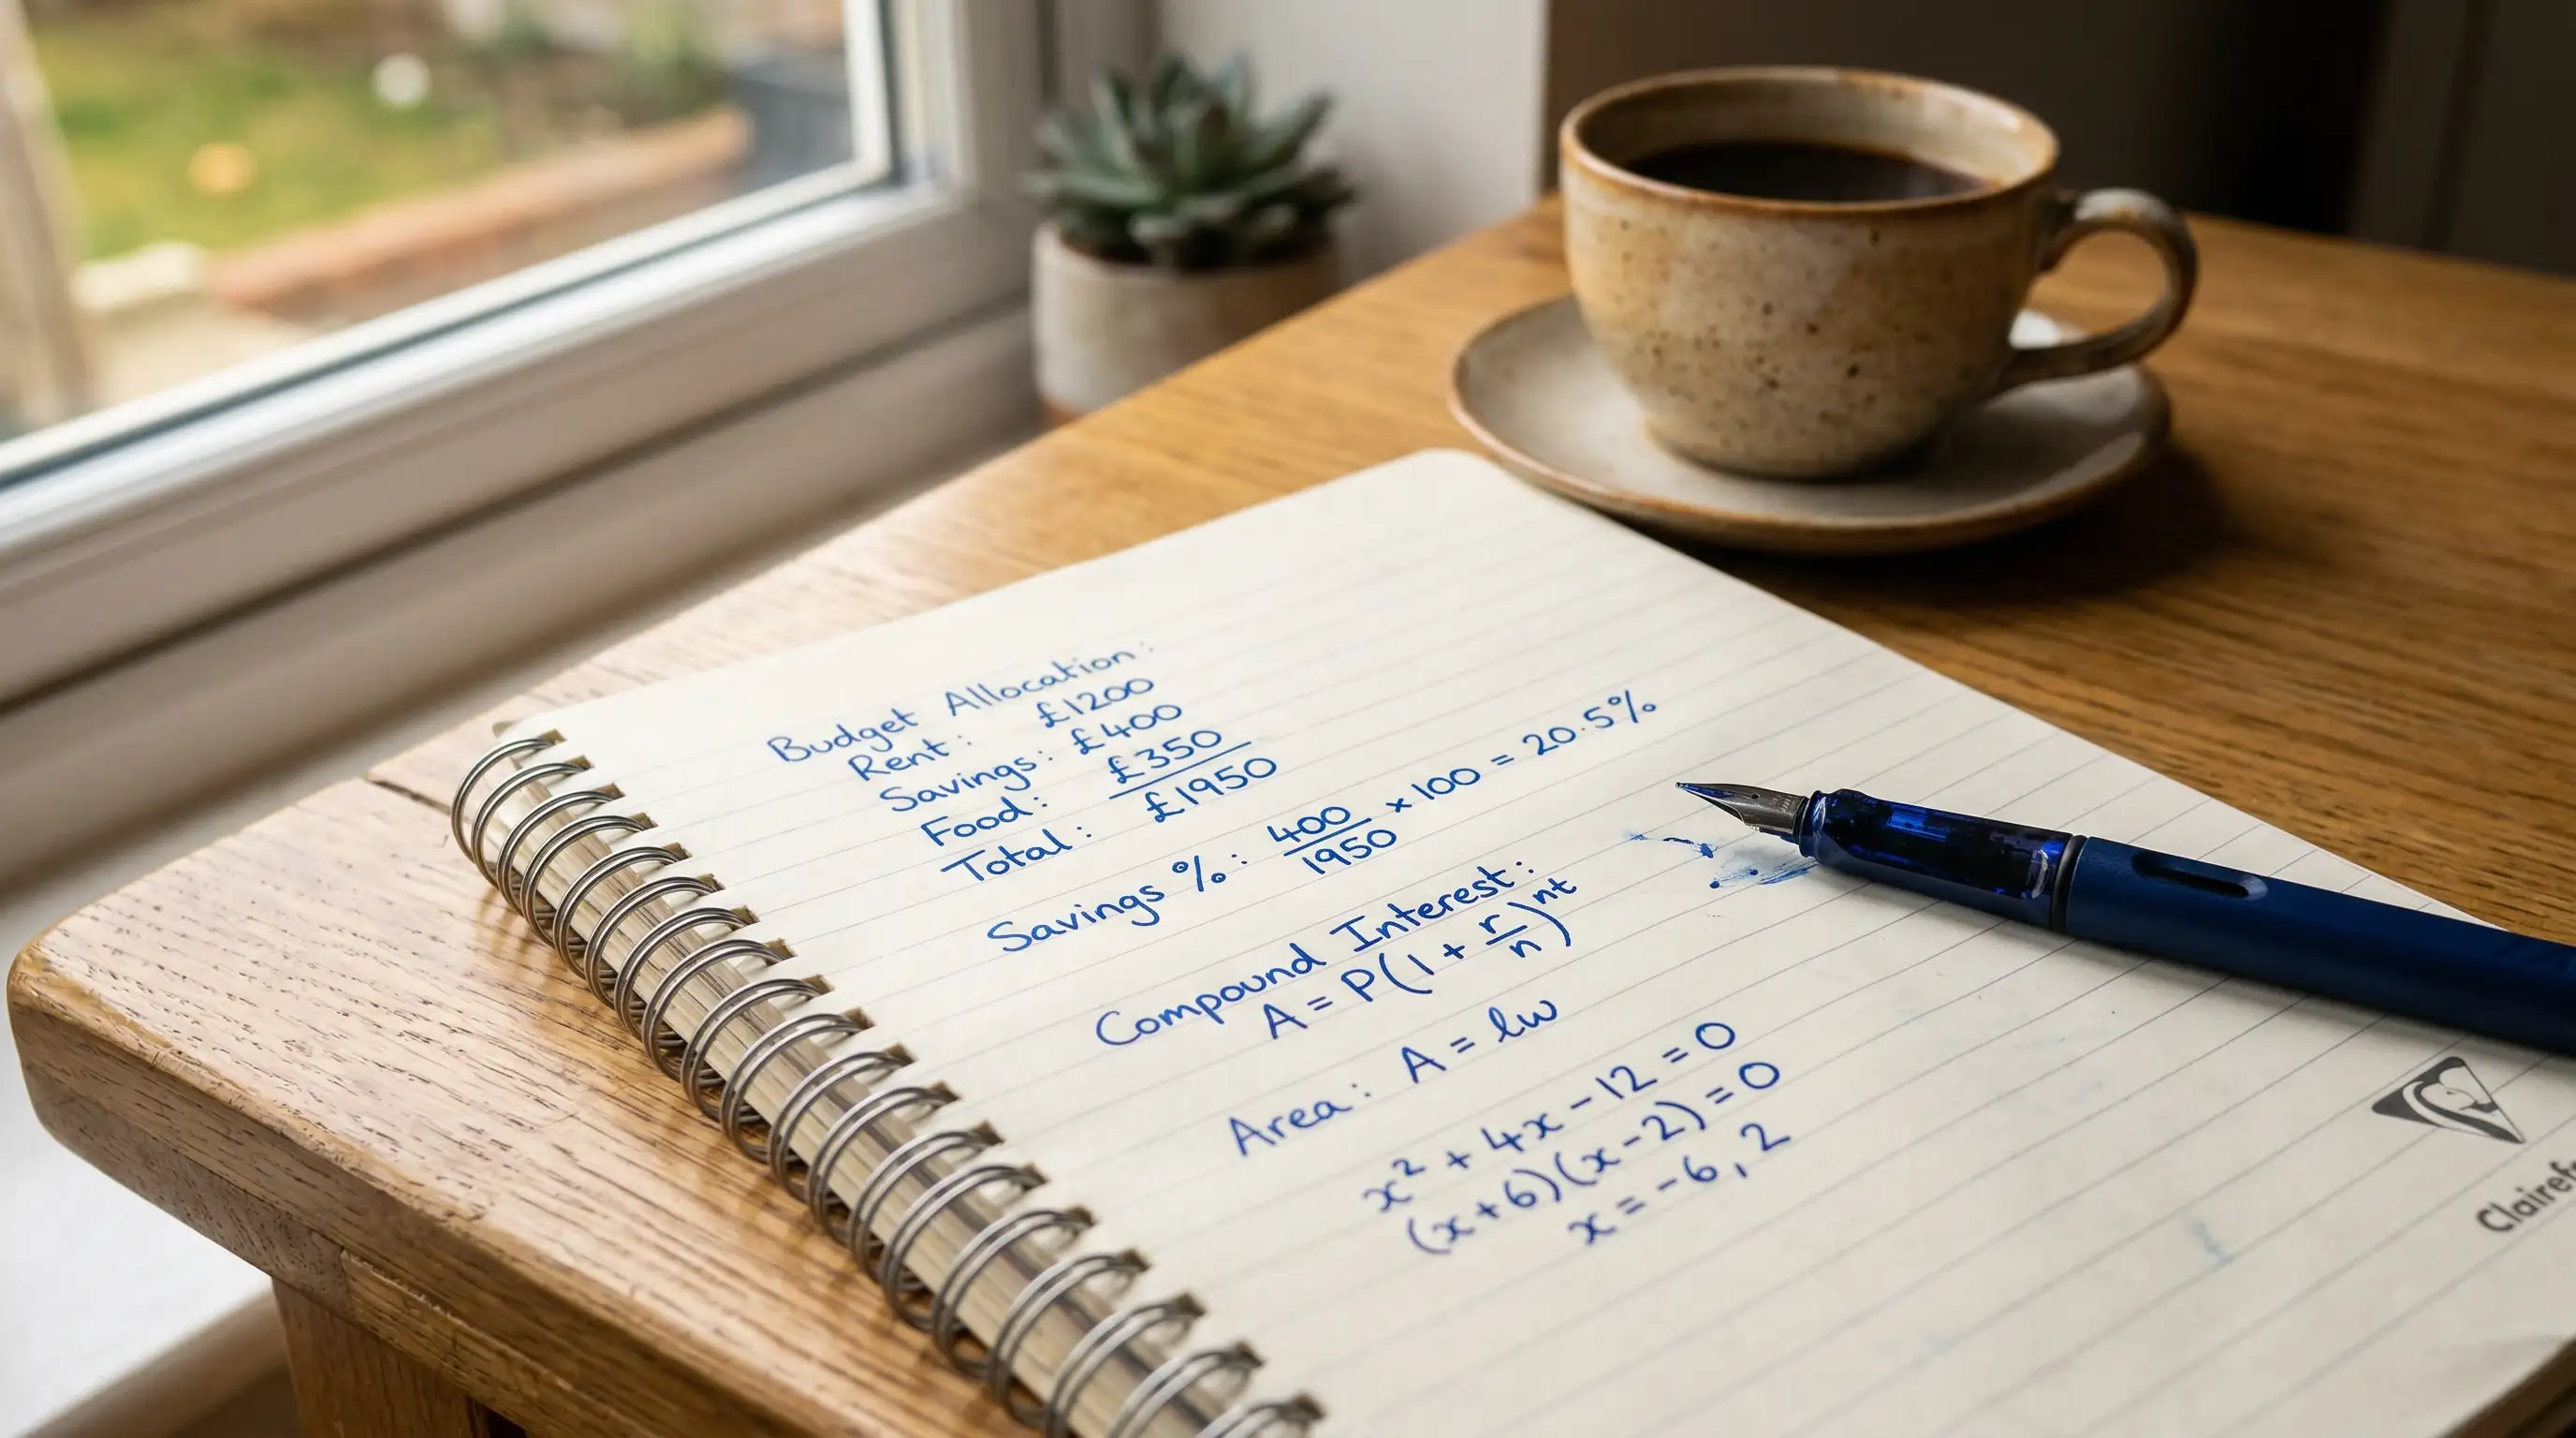 Budget Allocation:
Rent: £1200
Savings: £400
Food: £350
Total: £1950
Savings %: 400/1950 × 100 = 20.5%
Compound Interest:
A = P(1 + r/n)^nt
Area: A = lw
x² + 4x - 12 = 0
(x+6)(x-2) = 0
x = -6, 2
Clairef